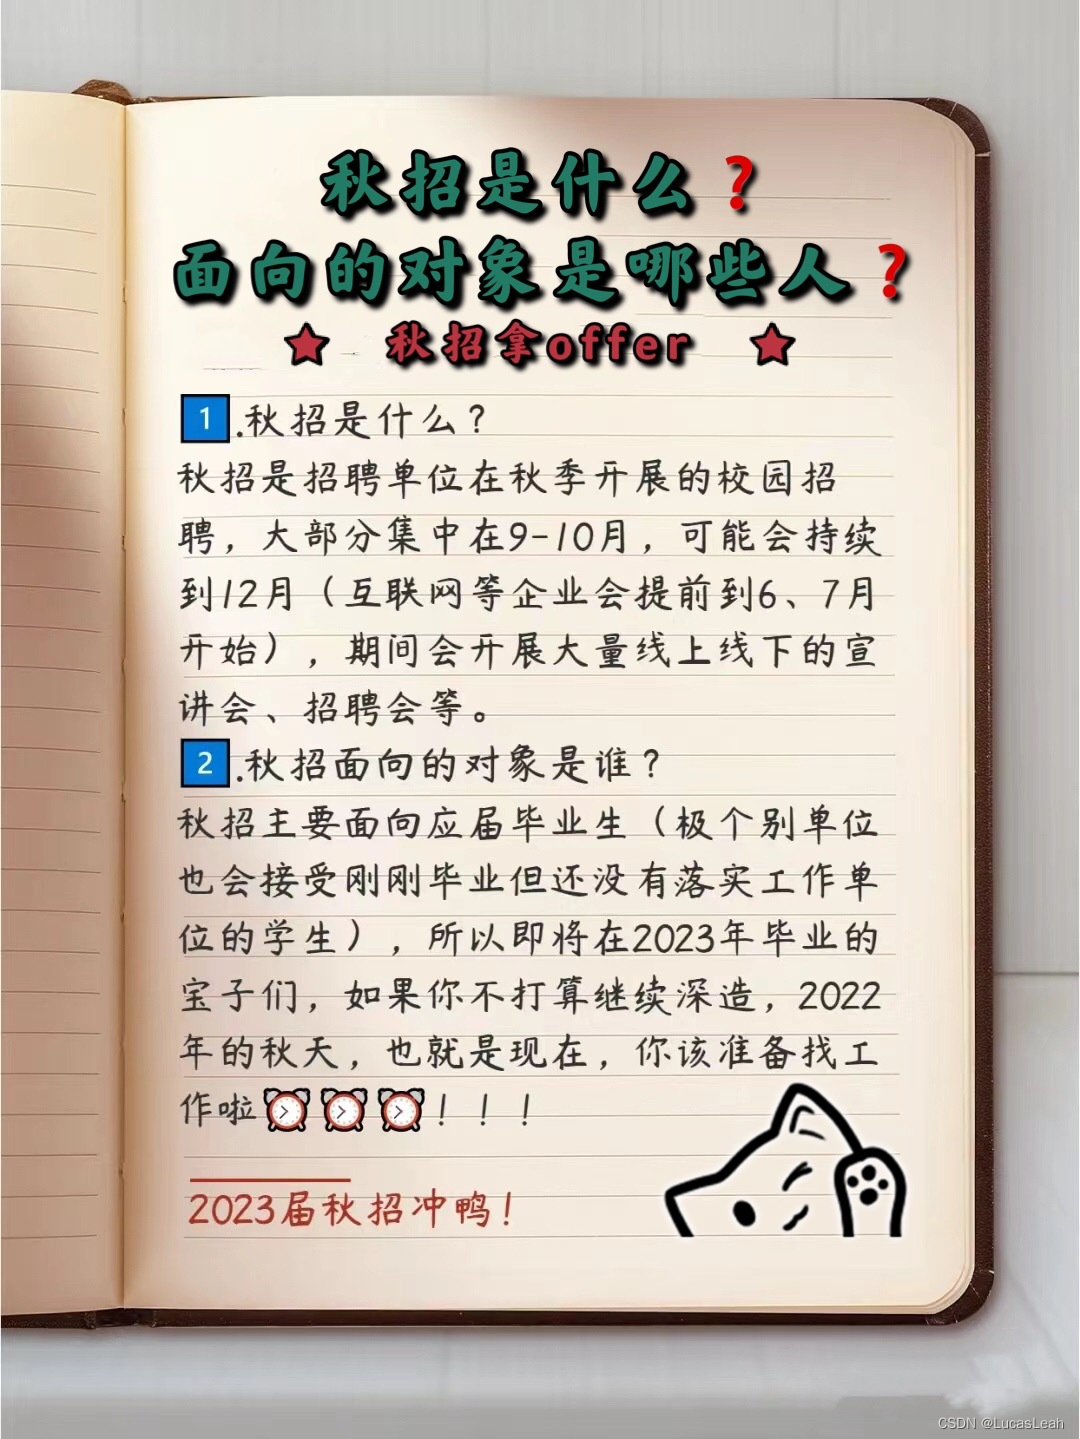 秋招是什么❓
面向的对象是哪些人❓
秋招拿offer
1.秋招是什么？
秋招是招聘单位在秋季开展的校园招
聘，大部分集中在9-10月，可能会持续
到12月（互联网等企业会提前到6、7月
开始），期间会开展大量线上线下的宣
讲会、招聘会等。
2.秋招面向的对象是谁？
秋招主要面向应届毕业生（极个别单位
也会接受刚刚毕业但还没有落实工作单
位的学生），所以即将在2023年毕业的
宝子们，如果你不打算继续深造，2022
年的秋天，也就是现在，你该准备找工
作啦⏰⏰⏰！！！
2023届秋招冲鸭！
CSDN @LucasLeah